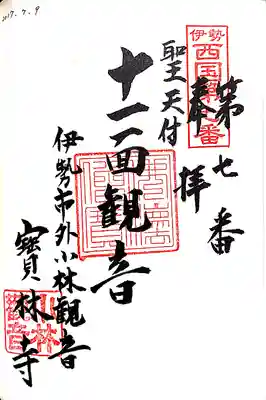 伊勢
西国
第七番
奉拝
聖天付
十一面観音
伊勢市外小林観音
寳林寺
小林
観音
2017.7.9